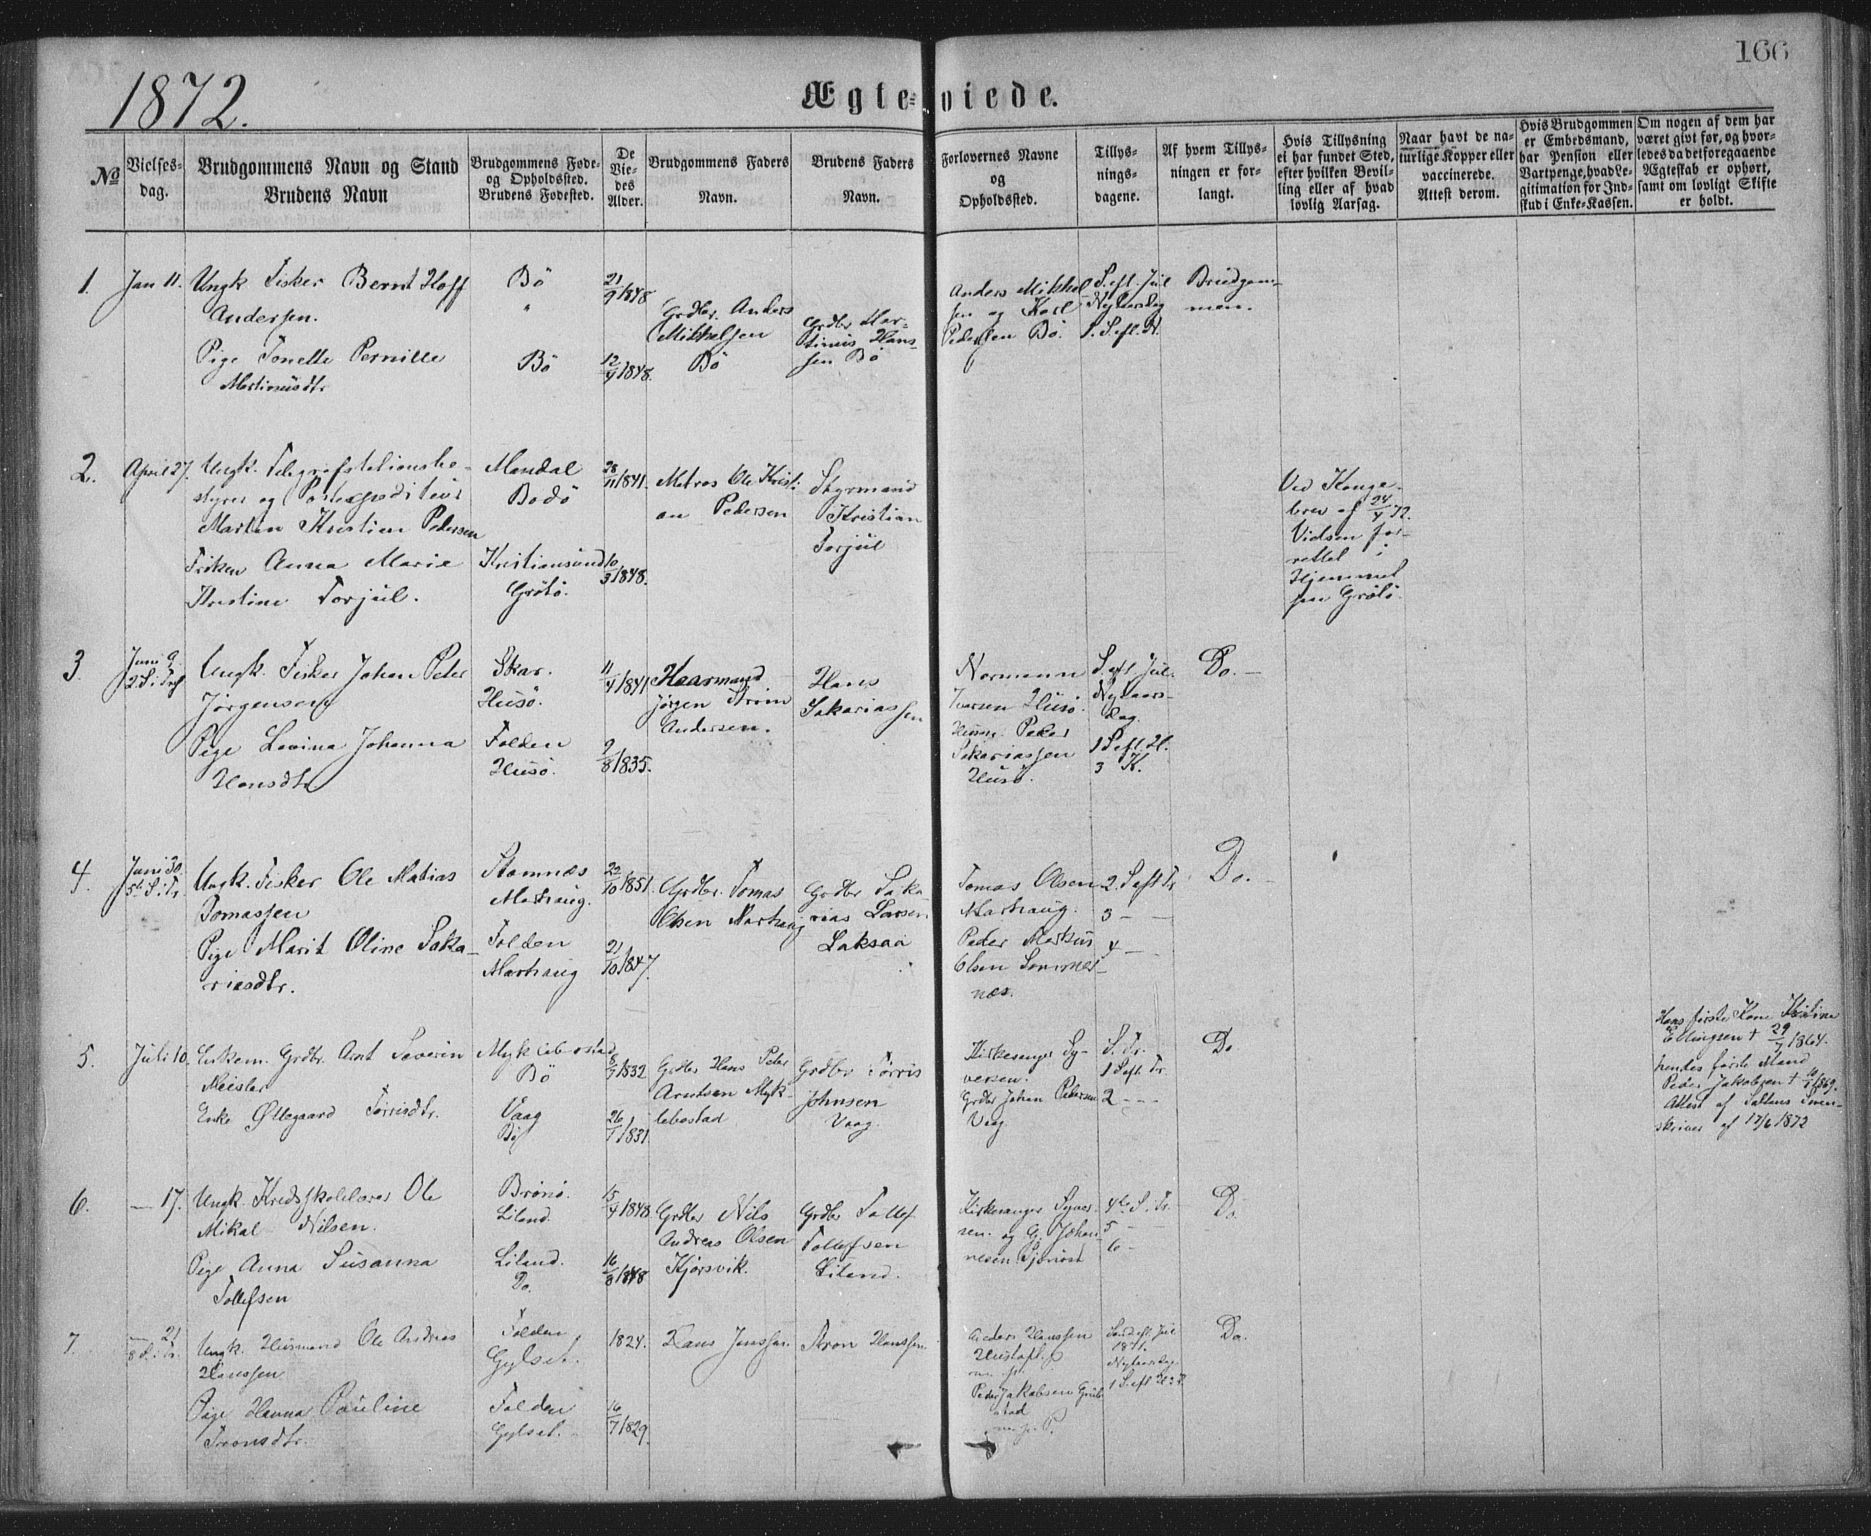 166
1872.
Ægteviede.
№
Vielsesdag.
Brudgommens Navn og Stand
Brudens Navn
Brudgommens Føde-
og Opholdssted.
Brudens Fødested.
De
Vie-
des
Alder.
Brudgommens Faders
Navn.
Brudens Faders
Navn.
Forlovernes Navne
og
Opholdssted.
Tillys-
nings-
dagene.
Af hvem Tillys-
ningen er for-
langt.
Hvis Tillysning
ei har fundet Sted,
efter hvilken Bevil-
ling eller af hvad
lovlig Aarsag.
Naar havt de na-
turlige Kopper eller
vaccinerede.
Attest derom.
Hvis Brudgommen
er Embedsmand,
har Pension eller
Vartpenge, hvad Le-
gitimation for Ind-
skud i Enke-Kassen.
Om nogen af dem har
været givt før, og hvor-
ledes da det foregaaende
Ægteskab er ophørt,
samt om lovligt Skifte
er holdt.
1.
Jan 11.
Ungk Fisker Bernt Hoff
Andersen.
Pige Tonette Pernille
Martinusdtr
Bö
"
Bö
21/9 1848
12/9 1848.
Grdbr. Anders
Mikkelsen
Bö
Grdbr Mar-
tinus Hans-
sen Bö
Anders Mikkel
sen og Karl
Pedersen Bö.
S. eft. Jul
Nytaarsdag
1. S. eft. N.
Brudgom-
men.
2.
April 27.
Ungk. Telegrafstationsbe-
styrer og Postexpeditör
Martin Kristian Pedersen
Fröken Anna Marie
Kristine Torjül.
Mandal
Bodö
Kristiansünd
Grötö.
28/11 1841.
10/3 1848.
Matros Ole Kristi
an Pedersen
Styrmand
Kristian
Torjül
Ved Konge-
brev af 24/4 72.
Vielsen for-
rettet i
Hjemmet
paa Grötö.
3
Juni 9.
2 S. i Tref
Ungk. Fisker Johan Peter
Jörgensen
Pige Lovina Johanna
Hansdtr
Skar.
Husö.
Folden
Husö.
11/4 1841
2/8 1835.
Kaarmand
Jörgen Arön
Andersen.
Hans
Sakariassen
Normann
Iversen Husö.
Husm. Peder
Sakariassen
Husö.
S. eft. Jul.
Nytaars-
dag.
1 S. eft. H.
3 K.
Do. —
4.
Juni 30.
5t. S. i Tr.
Ungk. Fisker Ole Matias
Tomassen
Pige Marit Oline Saka-
riasdtr.
Stamnæs
Marhaug.
Folden
Marhaug
22/10 1851.
21/10 1847.
Grdbr. Tomas
Olsen Marhaug
Grdbr Saka
rias Larsen
Laksaa
Tomas Olsen
Marhaug.
Peder Markus
Olsen Sommer-
næs.
2. S eft Tr
3 — —
4 — —
Do.
5.
Juli 10.
Enkem. Grdbr. Arnt Severin
Meisler
Enke Öllegaard Törrisdtr.
Myklebostad
Bö
Vaag
Bö
8/9 1832
26/1 1831
Grdbr Hans Peter
Arntsen Myk-
lebostad
Grdbr Törris
Johnsen
Vaag.
Kirkesanger Sy-
versen.
Grdbr Johan Pedersen
Vaag
S. Tr.
1 S eft. Tr.
2 - - -
Do
Hans første Kone Kristina
Ellingsen † 29/7 1864.
hendes förste Mand
Peder Jakobsen † 1869.
Attest af Saltens Soren-
skriver af 17/6 1872
6.
— 17.
Ungk. Kredsskolelærer Ole
Mikal Nilsen.
Pige Anna Susanna
Tollefsen
Brönö.
Liland.
Liland.
Do.
15/4 1848.
16/8 1848
Grdbr Nils
Andreas Olsen
Kjörsvik.
Grdbr Tollef
Tollefsen
Liland.
Kirkesanger Syver-
sen. og G. Johan-
nesen
4de S. i Tr.
5 — —
6 —
Do
7.
— 21
8 S. i Tr.
Ungk. Husmand Ole Andreas
Hanssen
Pige Hanna Pauline
Aronsdtr.
Folden
Gylset.
Folden
Gylset.
1824.
16/7 1829.
Hans Jenssen
Aron Hanssen
Anders Hanssen
Peder Jakobsen
stad
m. p. P.
S. eft. Jul
1871.
Nytaarsdag
1 S. eft
Do.